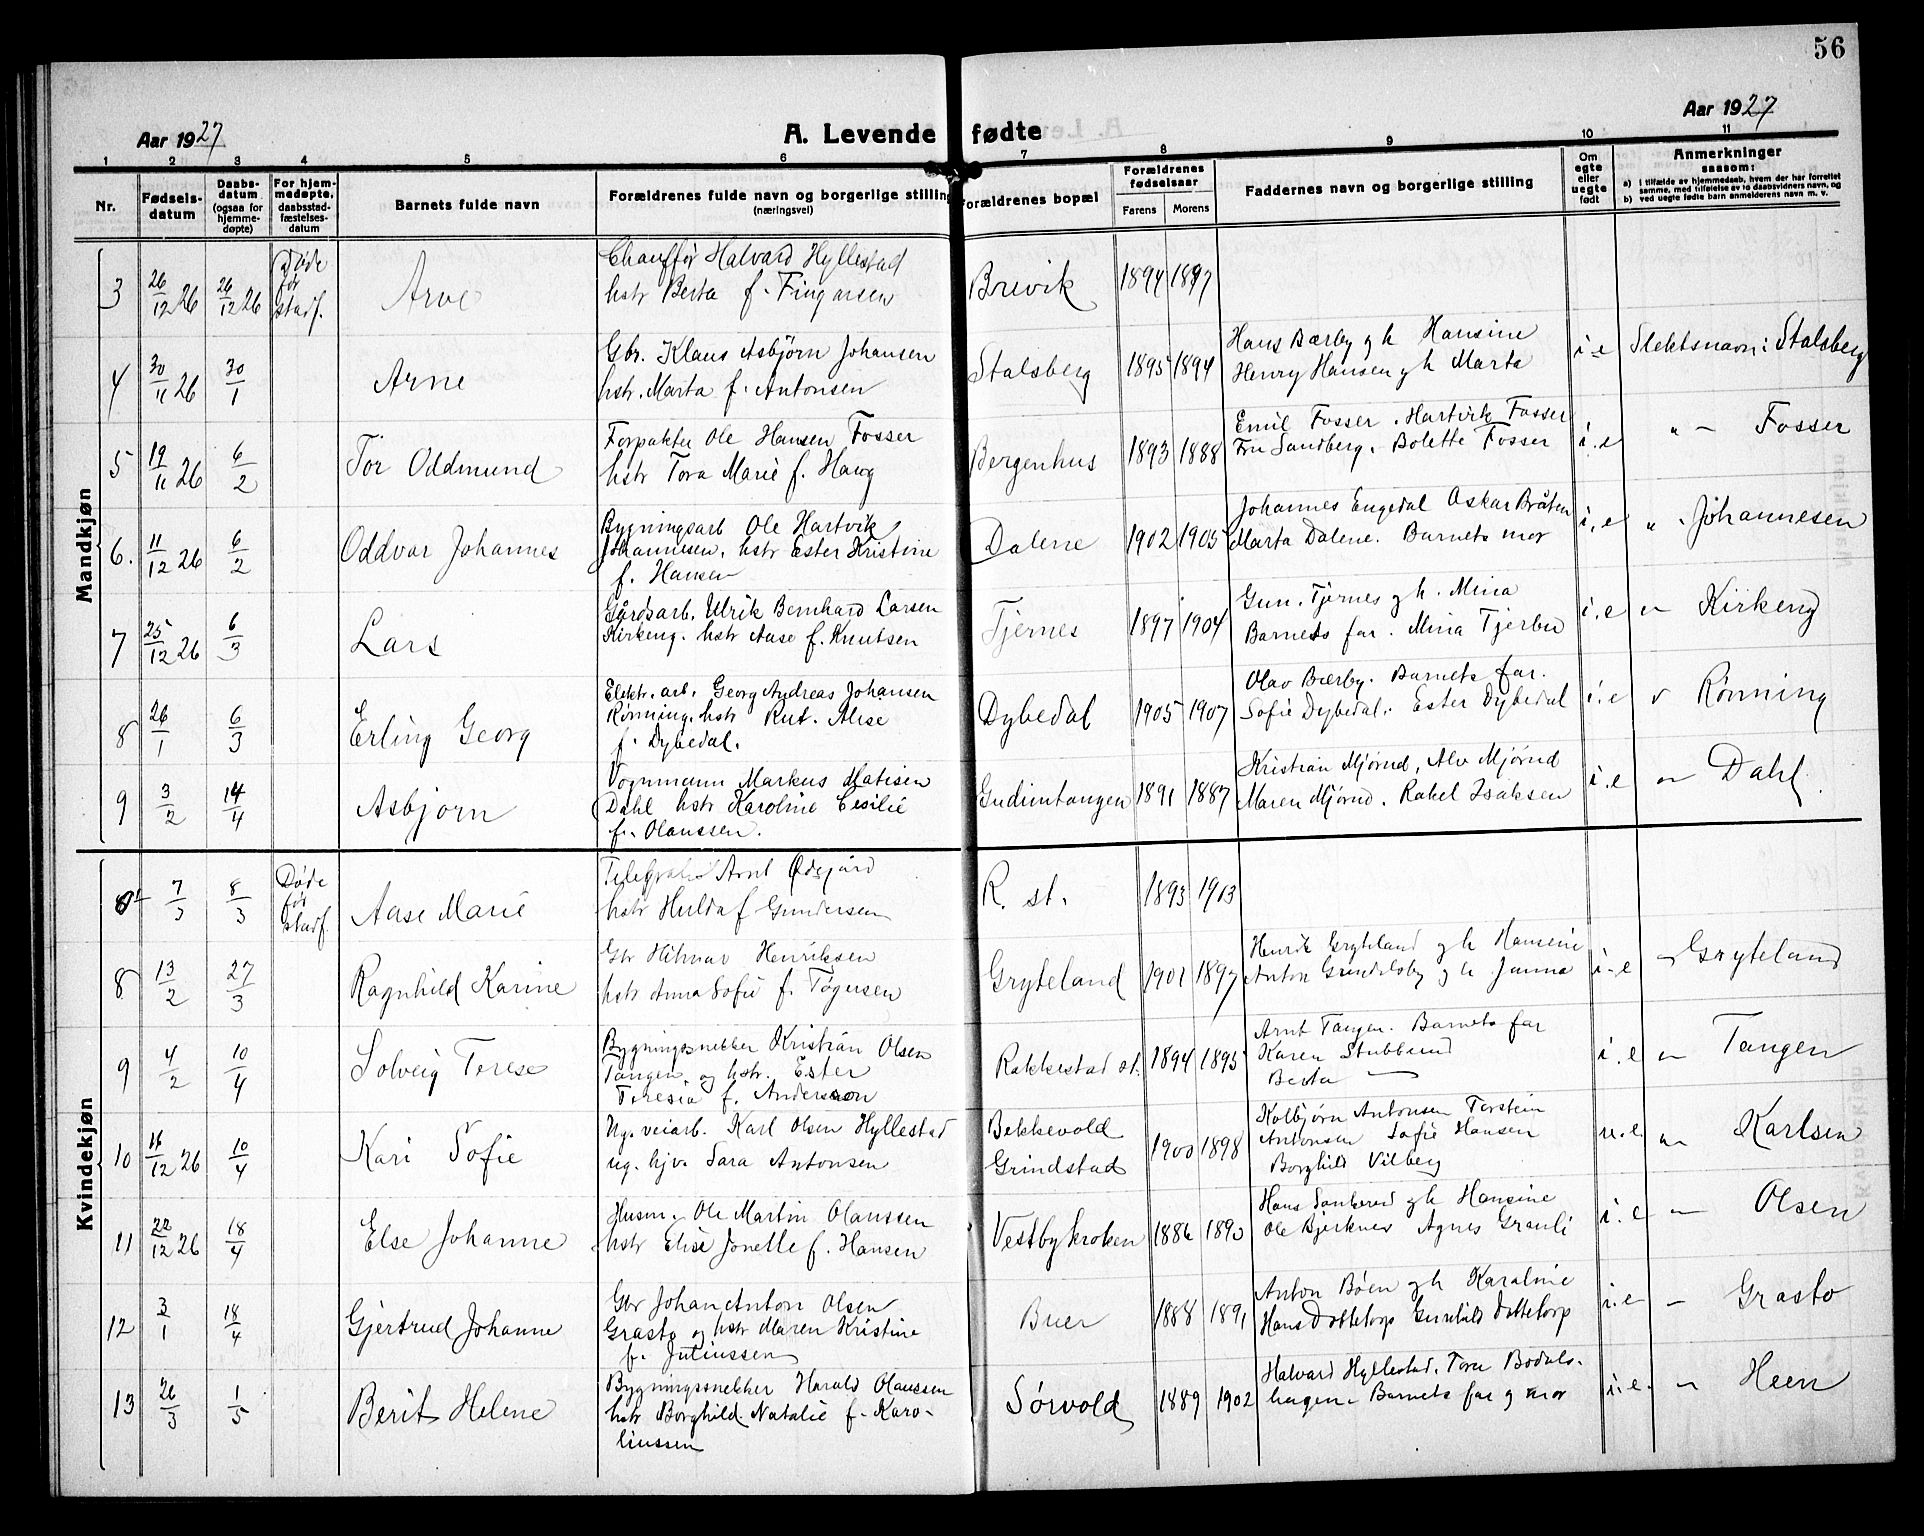 56
Aar 1927
A. Levende fødte
Aar 1927
1 2 3 4 5 6 7 8 9 10 11
Nr.
Fødselsdatum
Daabsdatum (ogsaa for hjemmedøpte)
For hjemmedøpte, daabsstadfæstelsesdatum
Barnets fulde navn
Forældrenes fulde navn og borgerlige stilling
(næringsvei)
Forældrenes bopæl
Forældrenes fødselsaar
Farens Morens
Faddernes navn og borgerlige stilling
Om egte eller uegte født
Anmerkninger
saasom:
a) i tilfælde av hjemmedaab, hvem der har forrettet samme, med tilføielse av to daabsvidners navn, og
b) ved uegte fødte barn anmelderens navn m. v.
Mandkjøn
3 26/12 26 26/12 26 Døde før stadf. Arve
Chauffør Halvard Hyllestad
hstr Berta f. Fingarsen
Brevik 1894 1897
4 30/11 26 30/1 Arne
Gbr. Klaus Asbjörn Johansen
hstr. Marta f. Antonsen
Stalsberg 1895 1894
Hans Bærby g h Hansine
Henry Hansen g h Marta
i-e Slektsnavn: Stalsberg
5 19/11 26 6/2 Tor Oddmund
Forpakter Ole Hansen Fosser
hstr Tora Marie f. Haug
Bergenhus 1893 1888
Emil Fosser. Hartvik Fosser
Fru Sandberg. Bolette Fosser
i.e " – Fosser
6. 11/12 26 6/2 Oddvar Johannes
Bygningsarb Ole Hartvik
Johannesen. hstr Ester Kristine
f. Hansen
Dalene 1902 1905
Johannes Engedal Oskar Bråten
Marta Dalene. Barnets mor
i.e " - Johannesen
7 25/12 26 6/3 Lars
Gårdsarb. Ulrik Bernhard Larsen
Kirkeng. hstr Aase f. Knutsen
Tjernes 1897 1904
Gun. Tjernes g h. Mina
Barnets far. Mina Tjerbu
i.e Kirkeng
8 26/1 6/3 Erling Georg
Elektr. arb. Georg Andreas Johansen
Rønning. hstr Rut. Alise
f. Dybedal.
Dybedal 1905 1907
Olav Bærby. Barnets far.
Sofie Dybedal. Ester Dybedal
i.e Rønning
9 3/2 14/4 Asbjørn
Vognmann Markus Matisen
Dahl hstr Karoline Cesilie
f. Olaussen.
Gudimtangen 1891 1887
Kristian Mjörud, Alv Mjörud
Maren Mjörud. Rakel Isaksen
i.e Dahl
Kvindekjøn
7/3 8/3 Døde før stadf Aase Marie
Arnt Ødegård
hstr Hulda f Gundersen
R. st. 1893 1903
8 13/2 27/3 Ragnhild Karine
Gbr Hilmar Henriksen
hstr Anna Sofie f. Tøgersen
Gryteland 1901 1897
Henrik Gryteland g h Hansine
Anton Grindelsby g h Janna
i-e Gryteland
9 4/2 10/4 Solveig Terese
Bygningssnekker Kristian Olsen
Tangen og hstr. Ester
Teresia f. Andersson
Rakkestad st. 1894 1895
Arnt Tangen. Barnets far
Karen Stubberud
Berta —
i.e Tangen
10 16/12 26 10/4 Kari Sofie
Ug. veiarb. Karl Olsen Hyllestad
ug. hjv. Sara Antonsen
Bekkevold
Grindstad 1900 1898
Kolbjørn Antonsen Torstein
Antonsen Sofie Hansen
Borghild Vilberg
u.e Karlsen
11 22/12 26 18/4 Else Johanne
Husm. Ole Martin Olaussen
hstr Elise Jonette f. Hansen
Vestbykroken 1886 1890
Hans g h Hansine
Ole Bjerknes Agnes Granli
i.e – Olsen
12 3/1 18/4 Gjertrud Johanne
Gbr Johan Anton Olsen
Grasto og hstr Maren Kristine
f. Juliussen
Buer 1888 1891
Anton Bøen g h Karoline
Hans Dottetorp Gunhild Dottetorp
i.e – Grasto
13 26/3 1/5 Berit Helene
Bygningssnekker Harald Olaussen
hstr Borghild Natalie f. Karo-
liussen
Sörvold 1889 1902
Halvard Hyllestad. Tora Bodals-
haugen. Barnets far og mor
i.e. – Heen